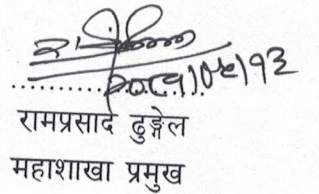 २०८१।०५।१३
रामप्रसाद ढुङ्गेल
महाशाखा प्रमुख